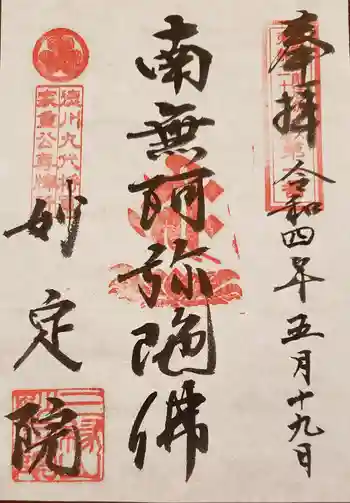 奉拝
令和四年五月十九日
南無阿弥陀佛
徳川九代将軍
家重公専修
妙定院